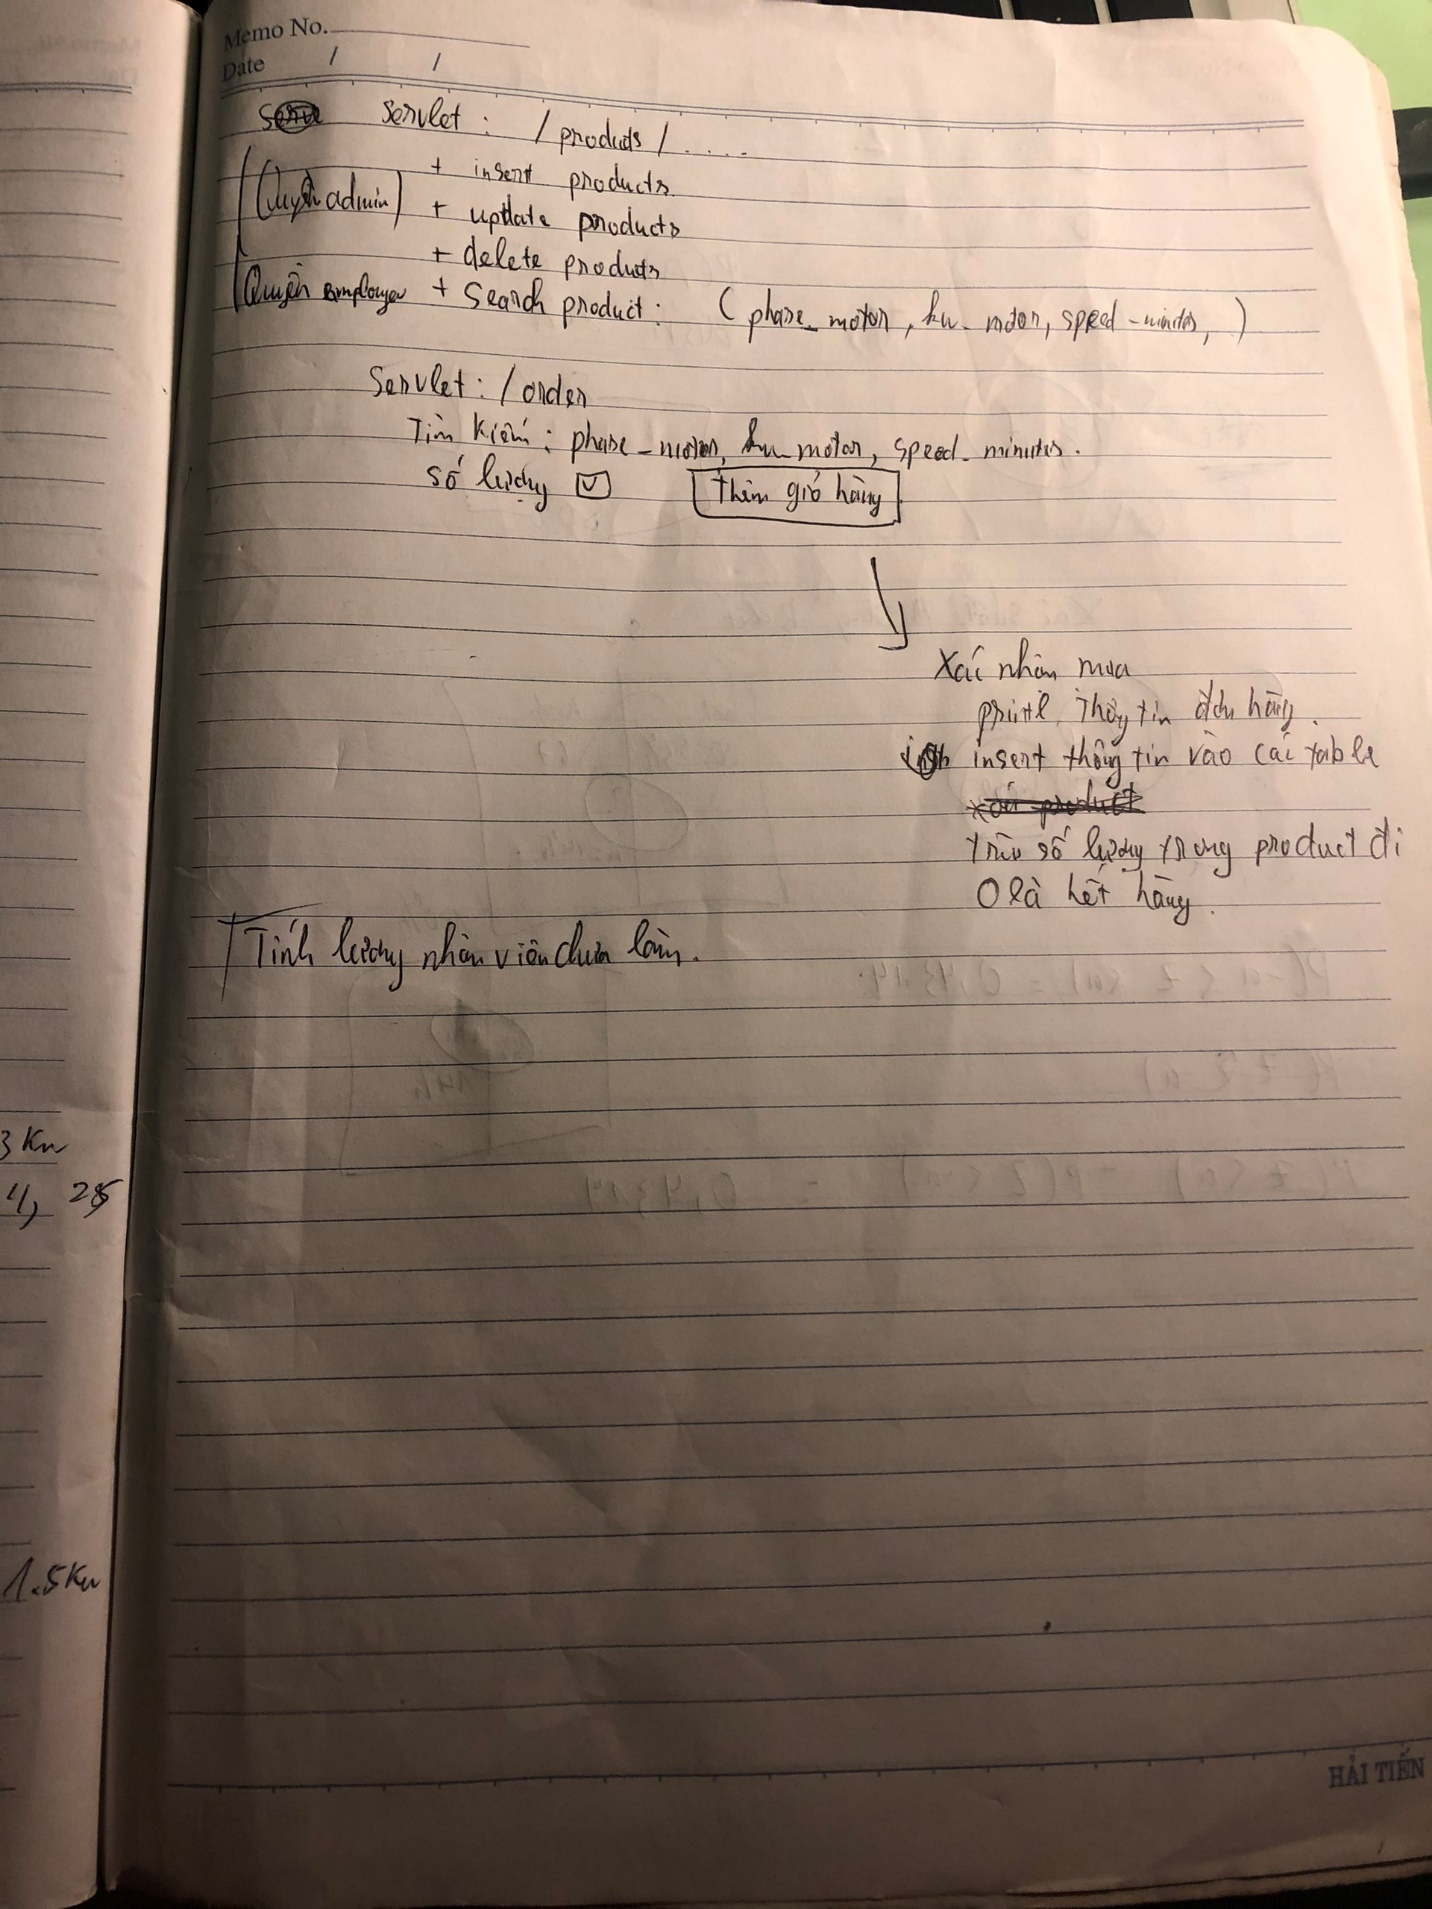 Memo No.
Date / /
Servlet : / products / . . . .
+ insert products
(Quyền admin) + update products
+ delete products
Quyền employer + Search product : ( phase_motor, kw_motor, speed_minutes, )
Servlet : / order
Tìm kiếm : phase_motor, kw_motor, speed_minutes.
số lượng
Thêm giỏ hàng
Xác nhận mua
print thông tin đơn hàng.
insert thông tin vào các table
trừ số lượng trong product đi
0 là hết hàng.
Tính lương nhân viên chưa làm.
3 Kw
4, 25
1.5Kw
HẢI TIẾN